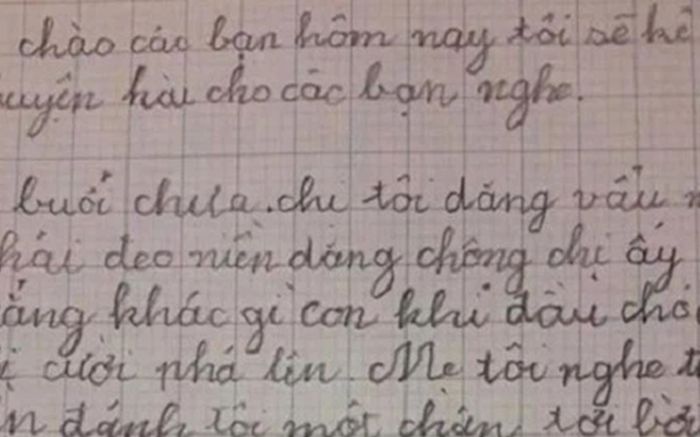 chào các bạn hôm nay tôi sẽ kể
uyện hài cho các bạn nghe.
buổi chưa. chị tôi dáng vẩu
hải deo niên dáng chông chị ấy
ẳng khác gì con khỉ dầu chó
cười phá lên Mẹ tôi nghe
dánh tôi một chận tơi bời